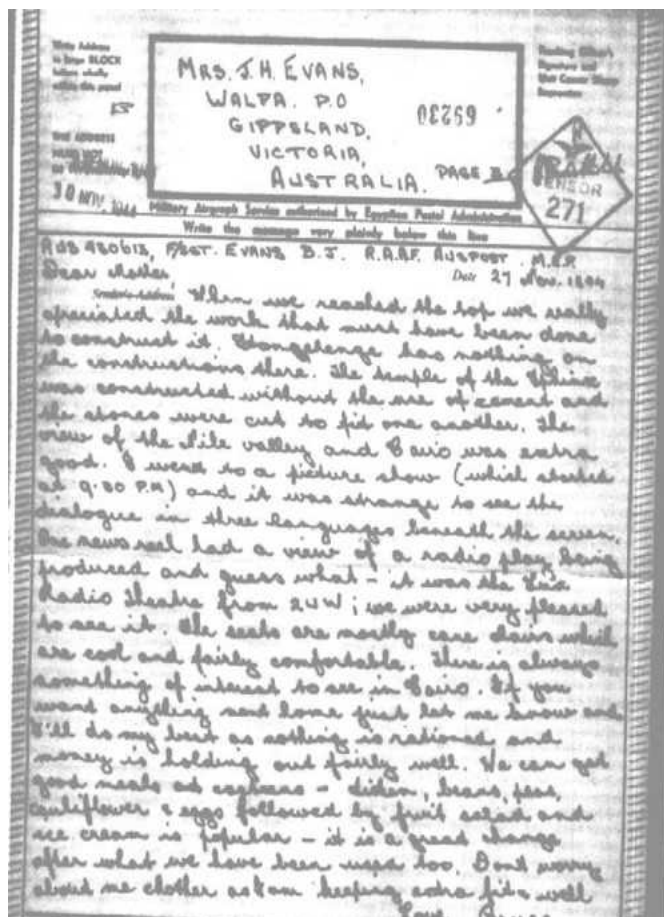 Write Address
in large BLOCK
letters wholly
within this panel
THE ADDRESS
MUST NOT
BE
30 NOV. 1944
MRS. J. H. EVANS,
WALPA. P.O
GIPPSLAND,
VICTORIA,
AUSTRALIA.
69230
PAGE
CENSOR
271
Military Airgraph Service authorised by Egyptian Postal Administration
Write the message very plainly below this line
AUS 430613, F/SGT. EVANS B. J. R.A.A.F. AUSPOST. M.E.F.
Dear Mother,
Date 27 Nov. 1944
Sender's Address When we reached the top we really
apreciated the work that must have been done
to construct it. Stongehenge has nothing on
the constructions there. The temple of the Sphinx
was constructed without the use of cement and
the stones were cut to fit one another. The
view of the Nile valley and Cairo was extra
good. I went to a picture show (which started
at 9.30 P.M) and it was strange to see the
dialogue in three languages beneath the screen.
One news reel had a view of a radio play being
produced and guess what - it was the Lux
Radio Theatre from 2UW; we were very pleased
to see it. The seats are mostly cane chairs which
are cool and fairly comfortable. There is always
something of interest to see in Cairo. If you
want anything sent home just let me know and
I'll do my best as nothing is rationed and
money is holding out fairly well. We can get
good meals at - , beans, peas,
cauliflower & eggs followed by fruit salad and
ice cream is popular - it is a great change
after what we have been used too. Dont worry
about me Mother as I am keeping extra fit & well
Love